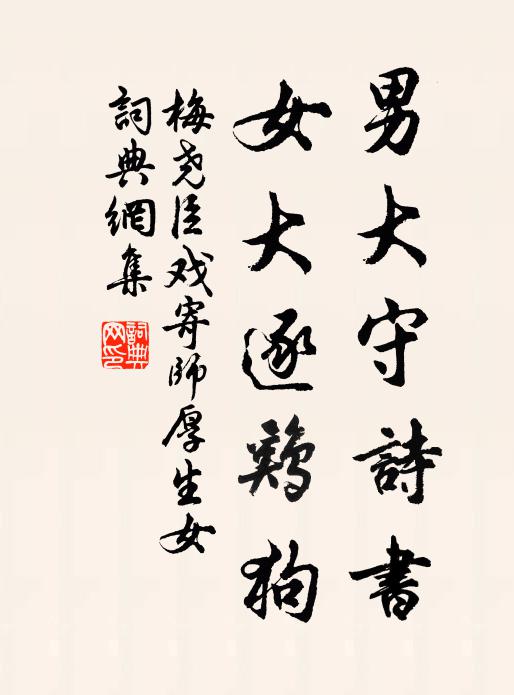 男大守詩書
女大逐鷄狗
梅尧臣戏寄師厚生女
詞典網集
詞典网印